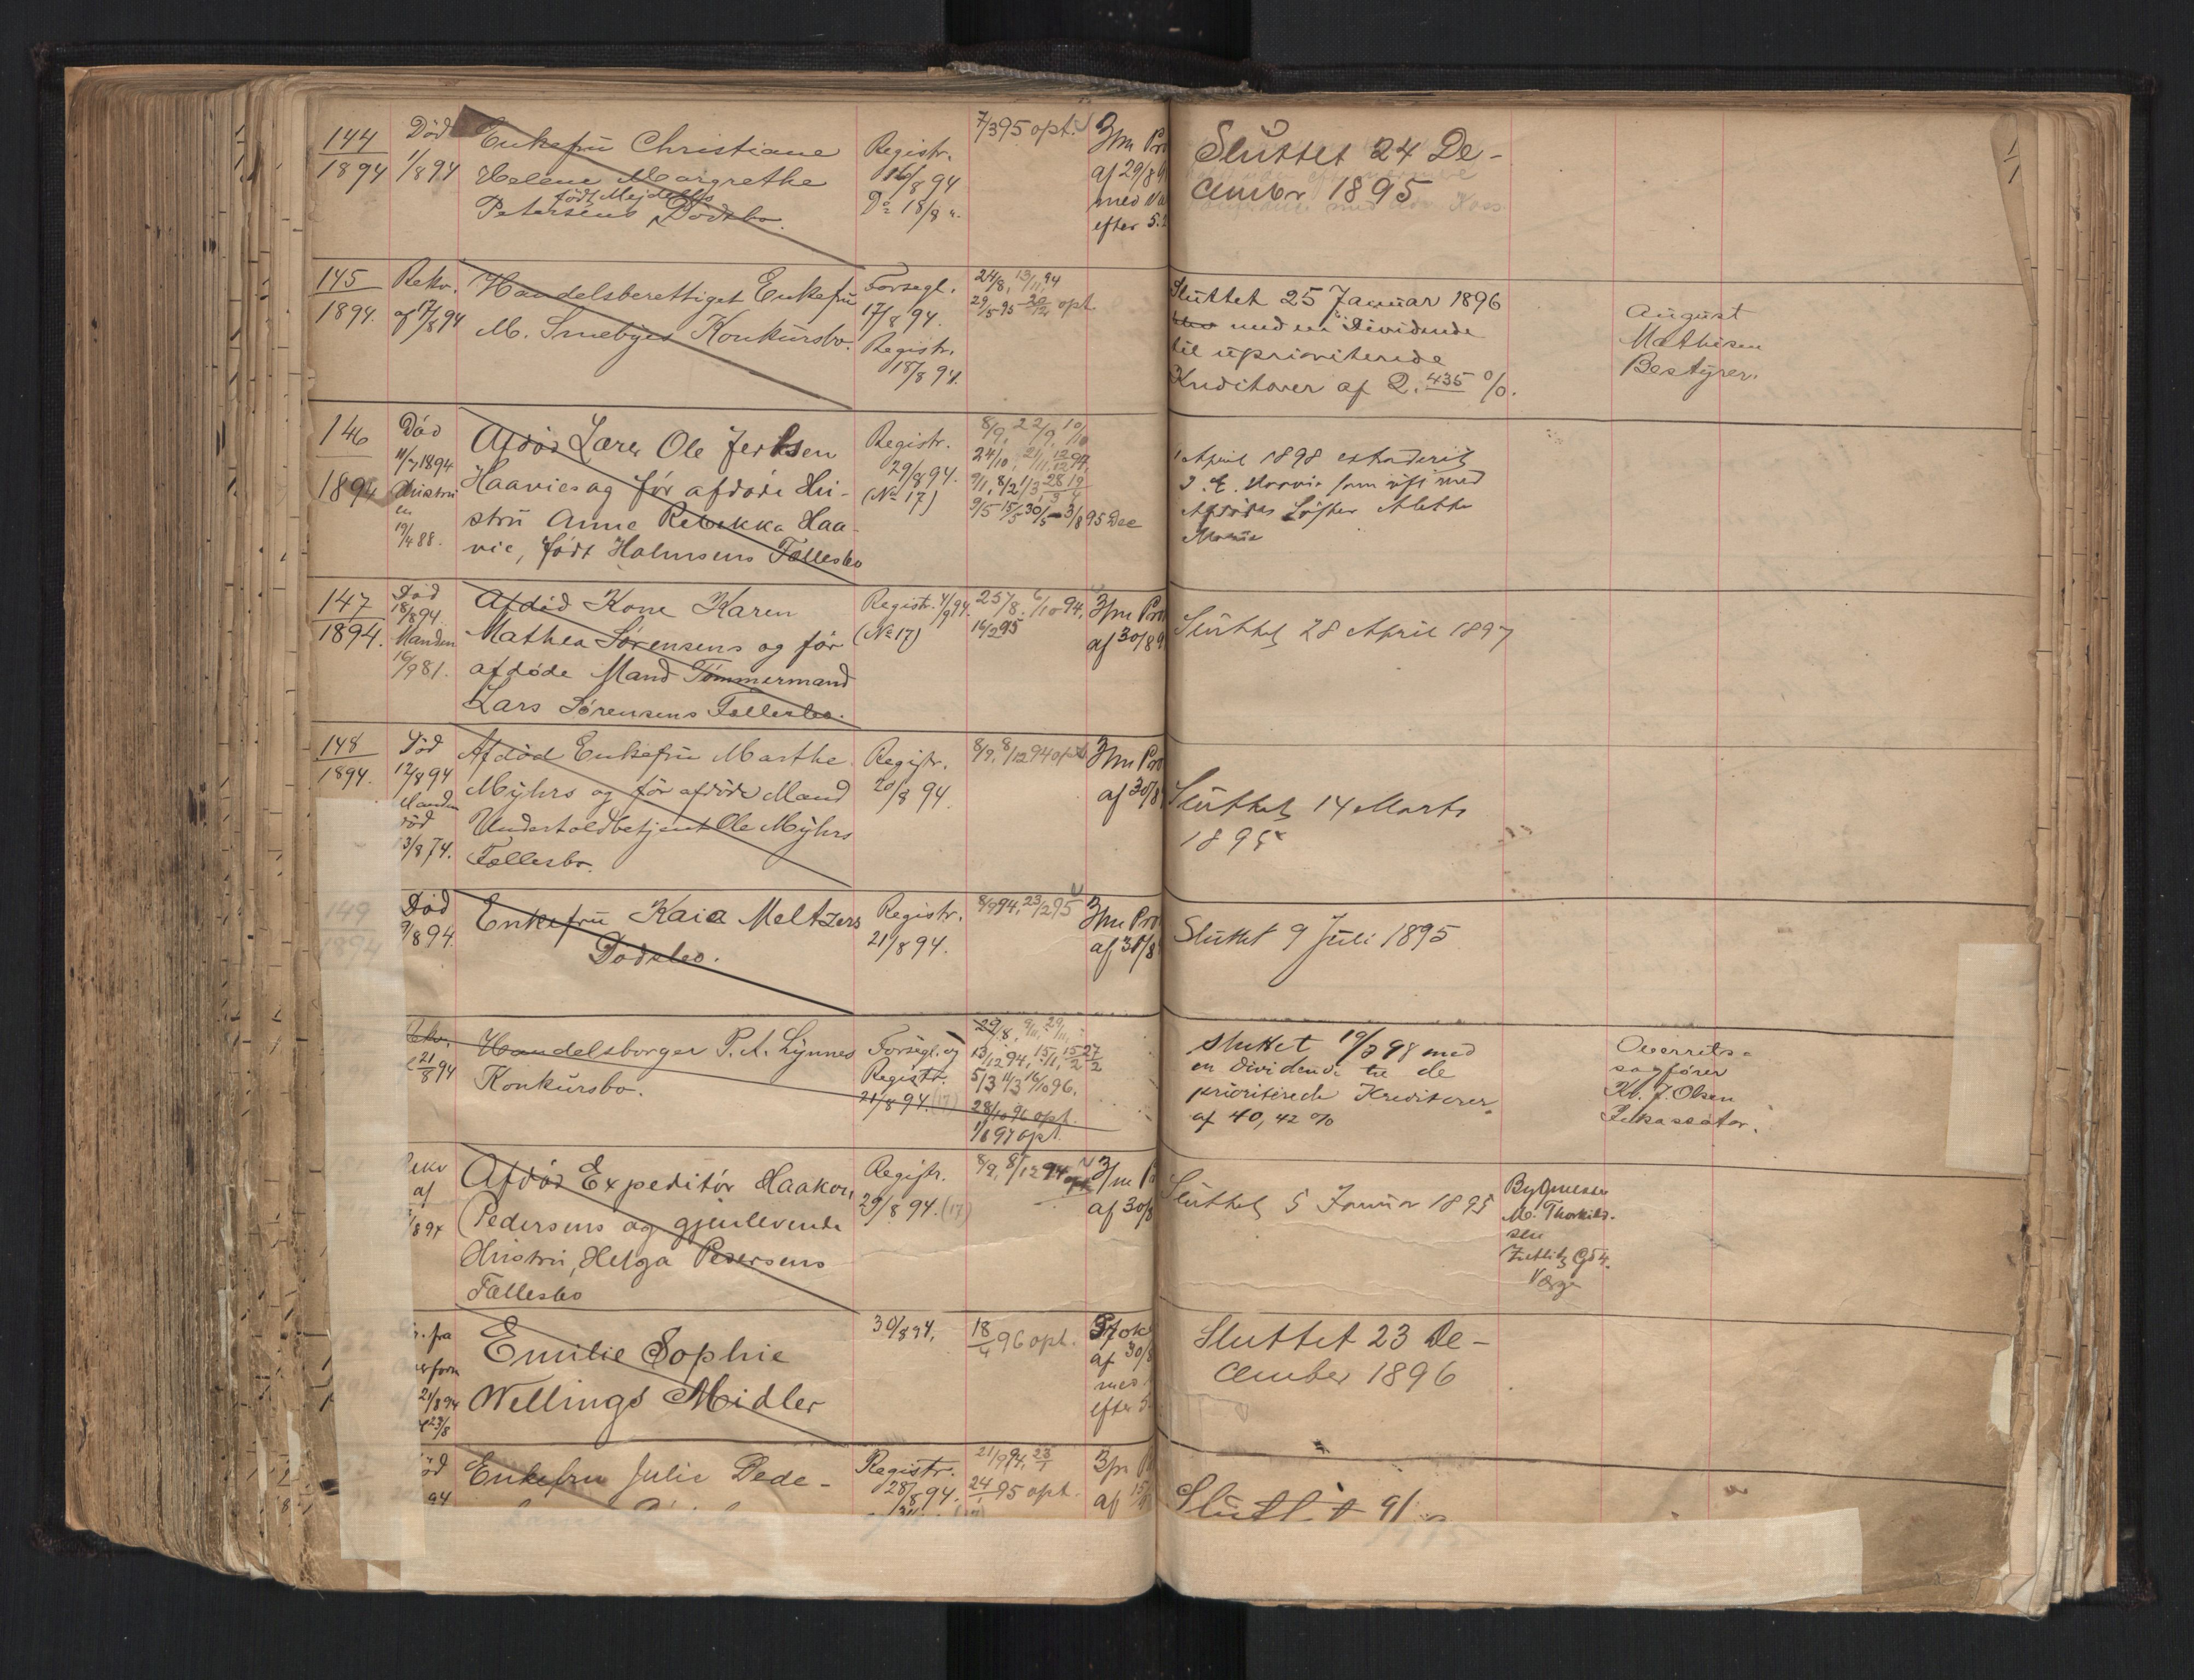 144
1894
Död
1/8 94
Enkefrü Christiane
Helene Margrethe
født Mejdells
Petersens Dödsbo.
Registr.
16/8 94
Do 18/8 "
7/3 95 opt.
3/m Pro
af 29/8 9
med
efter 5.
Slüttet 24 De-
cember 1895
145
1894.
Rekv.
af 17/8 94
Handelsberettiget Enkefrü
M. Smebyes Konkürsbo.
Forsegl.
17/8 94.
Registr.
18/8 94.
24/8, 13/11 94
29/5 95 opt
Slüttet 25 Januar 1896
med en Dividende
til üprioriterede
Kreditorer af 2.435 %.
August
Mathisen
Bestyrer.
146
1894
Död
11/7 1894
Hüstrü
en
19/4 88.
Afdöd Lærer Ole Jerksen
Haavies og för afdöde Hü-
strü Anne Rebekka Haa-
vie, födt Holmsens Fællesbo
Registr.
29/8 94.
(No 17)
8/9, 22/9, 10/10
24/10, 21/11, 12/12 94,
9/1, 8/2, 1/3, 28/3, 19/4
9/5 15/5 30/5 - 3/8 95 Dec
1 April 1898 extraderet
Afdödes Söster Alette
147
1894.
Död
18/8 94.
Manden
16/9 81.
Afdöd Kone Karen
Mathea Sörensens og för
afdöde Mand Tömmermand
Lars Sörensens Fællesbo.
Registr. 4/9 94.
(No 17)
25/8. 6/10 94,
16/2 95
3/m Pro
af 30/8 9
Slüttet 28 April 1897
148
1894.
Död
12/8 94
Manden
död
13/8 74.
Afdöd Enkefrü Marthe
Myhrs og för afdöde Mand
Underfoldbetjent Ole Myhrs
Fællesbo.
Registr.
20/8 94.
8/9, 8/12 94 opt
3/m Pro
af 30/8
Slüttet 14 Marts
1895
149
1894
Död
9/8 94.
Enkefrü Kaia Meltzers
Dödsbo.
Registr.
21/8 94.
8/9 94, 23/2 95
3/m Pro
af 31/8
Slüttet 9 Jüli 1895
Rekv.
21/8 94
Handelsborger P. A. Lynnes
Konkürsbo.
Forsegl. og
Registr.
21/8 94. (17)
29/8, 9/11, 29/11,
13/12 94, 15/1, 15/2 27/2
5/3 11/3 16/10 96.
28/10 96 opt.
1/8 97 opt.
slüttet 19/3 98 med
en dividende til de
prioriterede Kreditorer
af 40,42 %
Overrets-
sagförer
Kl. J. Olsen
Inkassator.
Rekv
af
/8 94
Afdöd Expeditör Haakon
Pedersens og gjenlevende
Hüstrü, Helga Pedersens
Fællesbo
Registr.
29/8 94. (17)
8/9, 8/12 94 opt
3/m P
af 30/8
Slüttet 5 Januar 1895
M. Thorkild-
sen
Værge
fra
21/8 94
23/8
Emilie Sophie
Wellings Midler
30/8 94.
18/4 96 opt.
Prok
af 30/8
med
efter 5.
Sluttet 23 De-
cember 1896
öd
94
Enkefru Julie Dede-
Registr.
28/8 94.
21/9 94, 23/1
24/1 95 opt.
3/m P
af 15/
Slüttet 9/